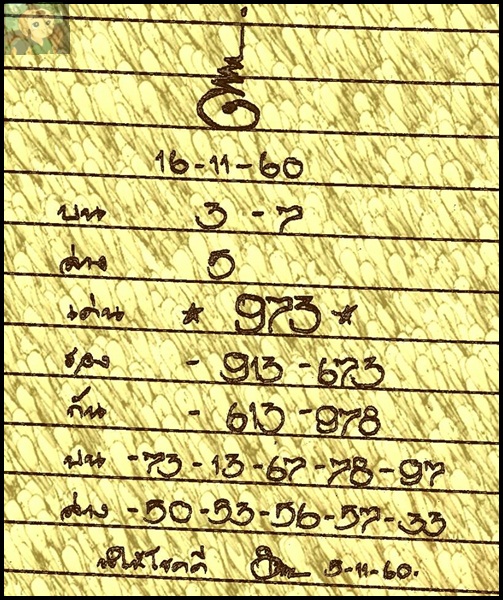 16-11-60
บน 3 - 7
ล่าง 5
เด่น * 973 *
รอง - 913 - 673
กัน - 613 - 978
บน - 73 - 13 - 67 - 78 - 97
ล่าง - 50 - 53 - 56 - 57 - 33
โชคดี 5-11-60.